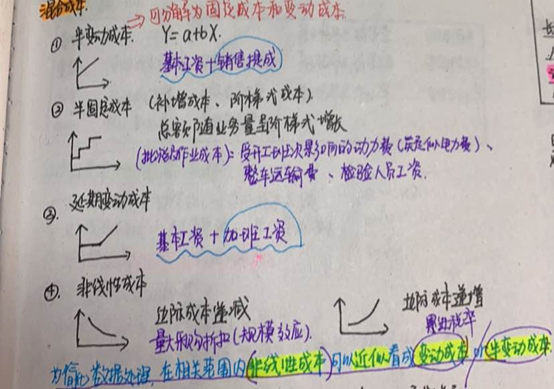 混合成本. → 可分解为固定成本和变动成本
① 半变动成本. Y=a+bX.
基本工资+销售提成
② 半固定成本 (步增成本、阶梯式成本)
总额随业务量呈阶梯式增长
(批次级作业成本): 受开工班次影响的动力费
整车运输费、检验人员工资.
③ 延期变动成本
基本工资+加班工资
④. 非线性成本
边际成本递减 边际成本递增
量大有折扣(规模效应). 累进税率
为简化数据处理, 在相关范围内非线性成本可以近似看成变动成本或半变动成本.